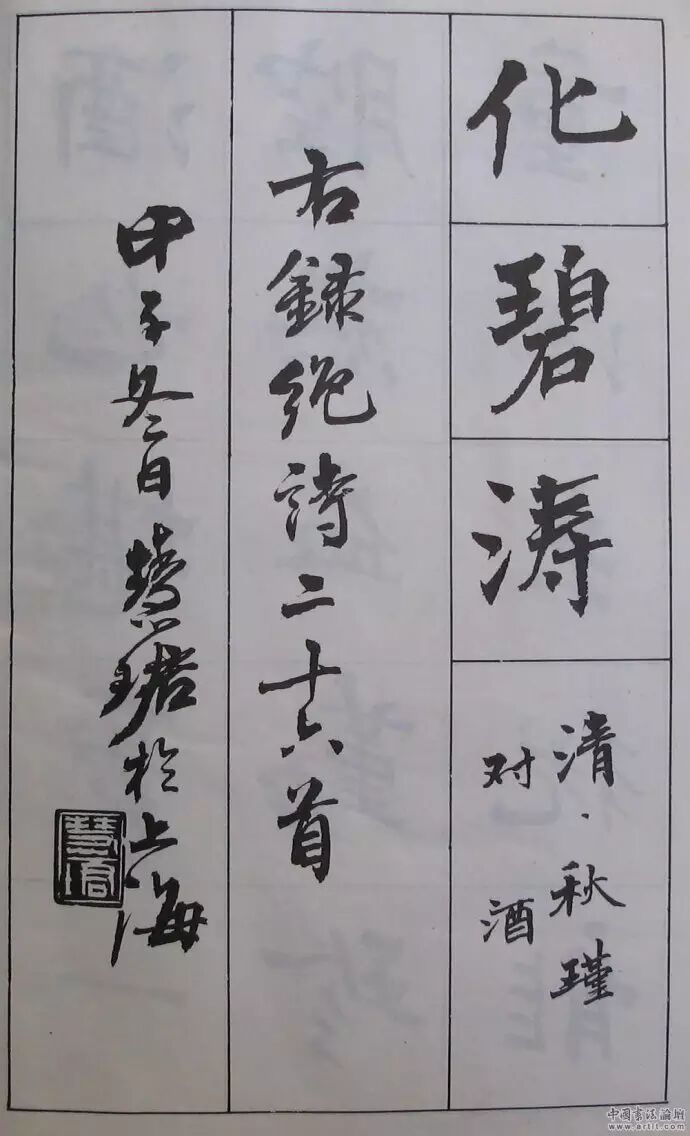 化碧涛
清·秋瑾
对酒
右録绝诗二十六首
甲子冬日慧珺於上海
慧珺
中国书法论坛
www.artlt.com